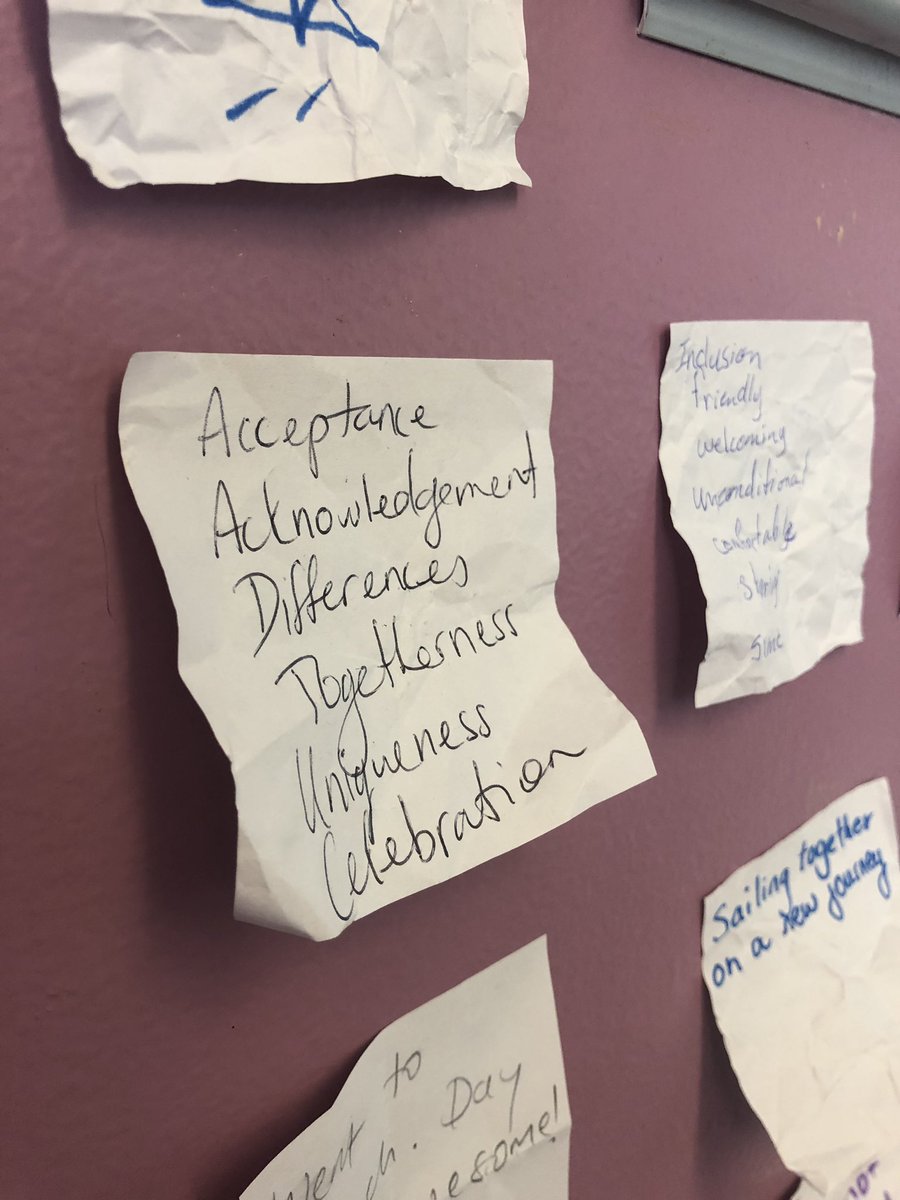 Acceptance
Acknowledgement
Differences
Togetherness
Uniqueness
Celebration
Inclusion
friendly
welcoming
unconditional
comfortable
Sailing together
on a new journey
to
Day